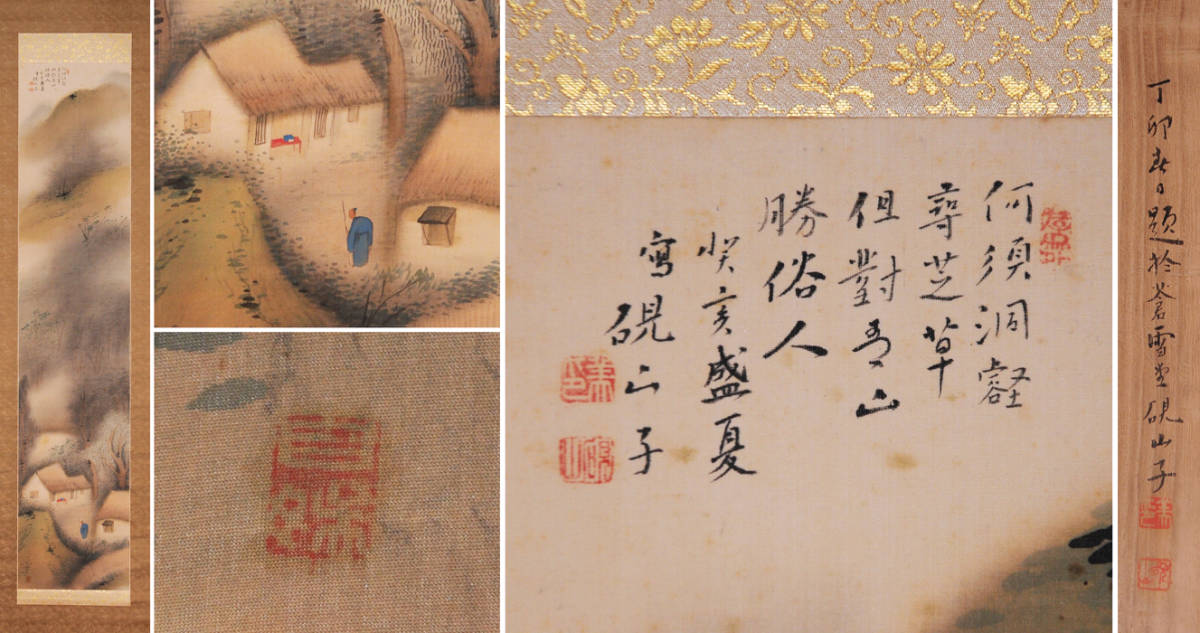 何須洞壑
尋芝草
但對青山
勝俗人
癸亥盛夏
寫硯山子
丁卯春日題於蒼雪堂硯山子